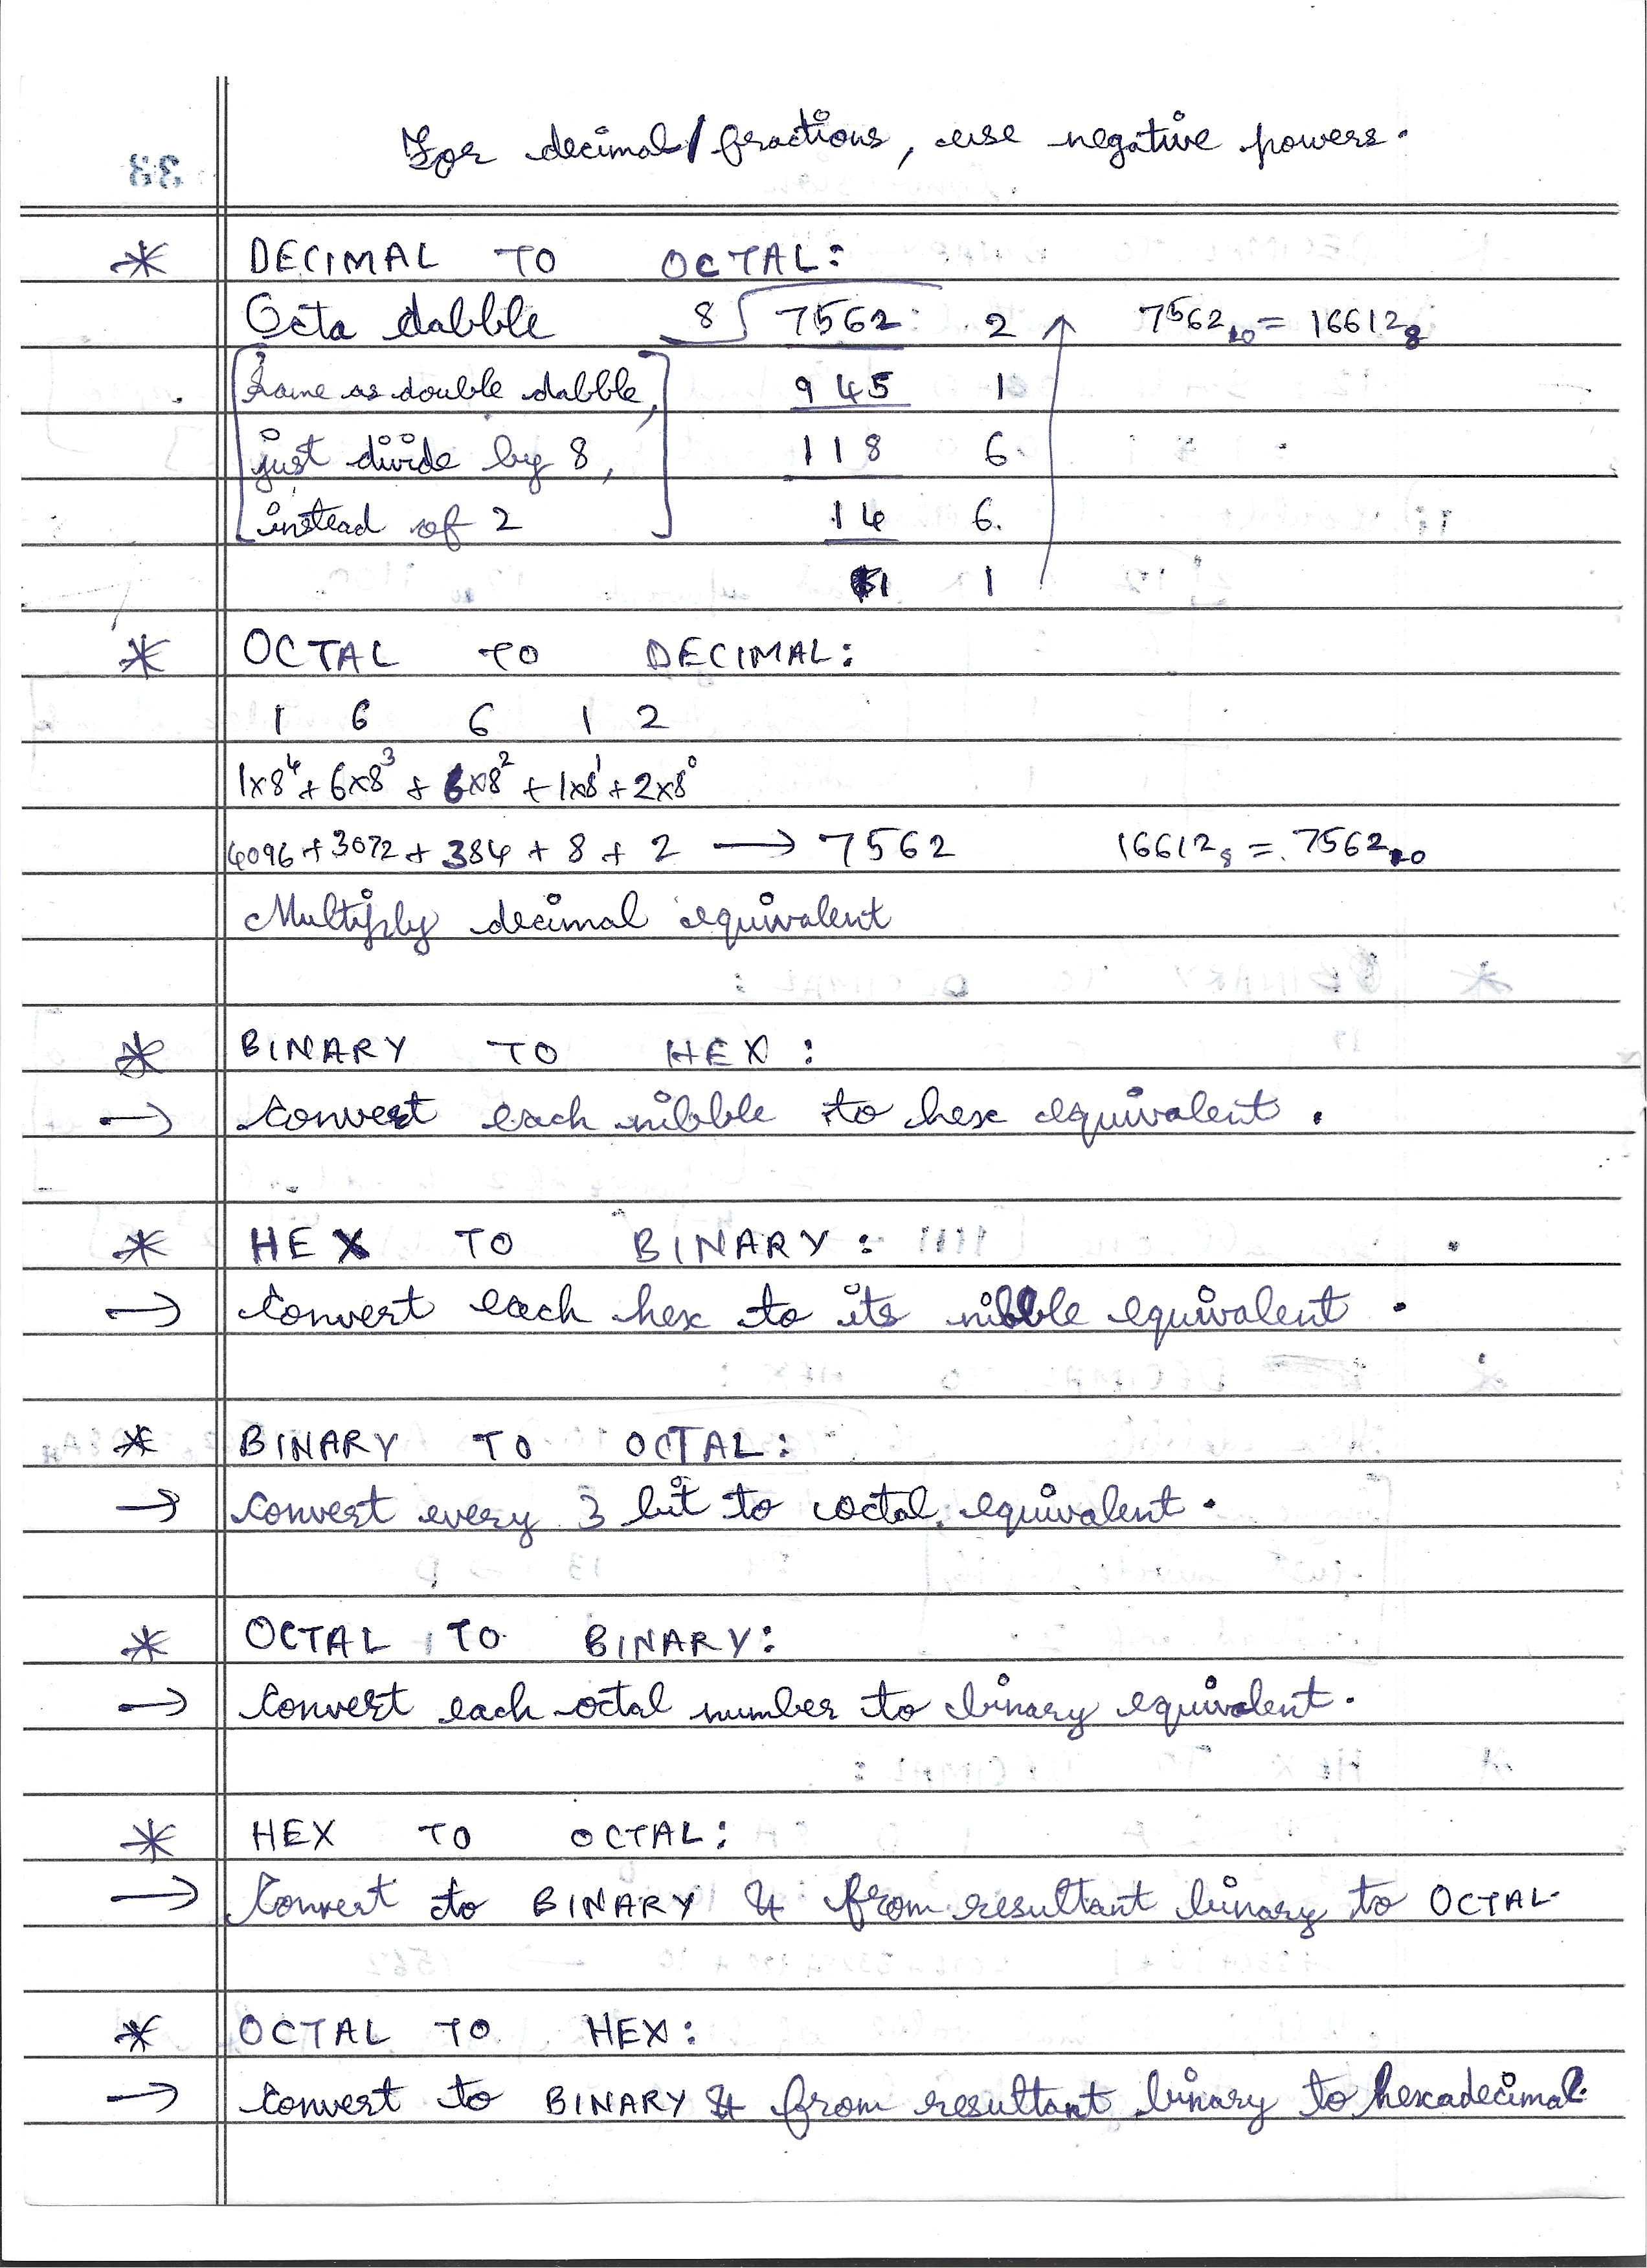 For decimal/fractions, use negative powers.
33
* DECIMAL TO OCTAL:
Octa dabble 8 7562 2 7562₁₀ = 16612₈
[same as double dabble, 945 1
just divide by 8, 118 6
instead of 2] 14 6.
1 1
* OCTAL TO DECIMAL:
1 6 6 1 2
1x8⁴ + 6x8³ + 6x8² + 1x8¹ + 2x8⁰
4096 + 3072 + 384 + 8 + 2 → 7562 16612₈ = 7562₁₀
Multiply decimal equivalent
* BINARY TO HEX:
→ Convert each nibble to hex equivalent.
* HEX TO BINARY:
→ Convert each hex to its nibble equivalent.
* BINARY TO OCTAL:
→ Convert every 3 bit to octal equivalent.
* OCTAL TO BINARY:
→ Convert each octal number to binary equivalent.
* HEX TO OCTAL:
→ Convert to BINARY & from resultant binary to OCTAL
* OCTAL TO HEX:
→ Convert to BINARY & from resultant binary to hexadecimal.